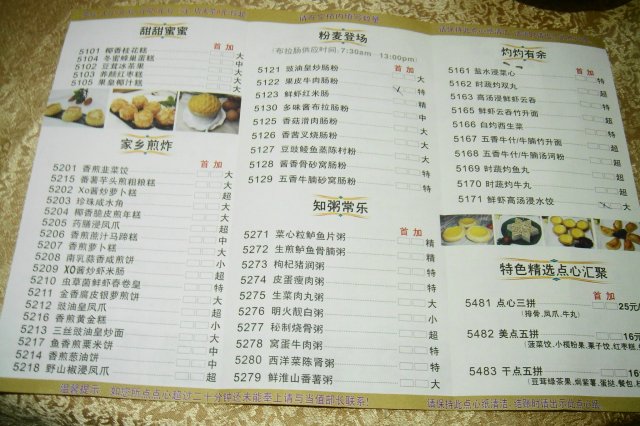 甜甜蜜蜜
首 加
5101 椰香桂花糕 中
5104 冬蜜蜂巢蛋糕 中
5102 豆茸冰茶果 大
5103 养颜红枣糕 大
5105 果皇椰汁糕 大
家乡煎炸
首 加
5201 香煎韭菜饺 大
5215 番薯芋头煎粗粮糕 大
5202 Xo酱炒萝卜糕 超
5203 珍珠咸水角 中
5204 椰香脆皮煎年糕 大
5205 药膳浸凤爪 超
5206 香煎蔗汁马蹄糕 中
5207 香煎萝卜糕 中
5208 南乳蒜香咸煎饼 小
5209 XO酱炒虾米肠 超
5210 虫草菌鲜虾春卷皇 特
5211 金香腐皮银萝煎饼 大
5212 豉油皇凤爪 超
5216 香煎黄金糕 小
5213 三丝豉油皇炒面 大
5217 鱼香煎粟米饼 中
5214 香煎葱油饼 中
5218 野山椒浸凤爪 超
粉麦登场
(布拉肠供应时间:7:30am - 13:00pm)
首 加
5121 豉油皇炒肠粉 大
5122 果皮牛肉肠粉 特
5123 鲜虾红米肠 精
5130 多味酱布拉肠粉 中
5125 香菇滑肉肠粉 大
5126 香茜叉烧肠粉 大
5127 豆豉鲮鱼蒸陈村粉 大
5128 酱香骨砂窝肠粉 特
5129 五香牛腩砂窝肠粉 特
知粥常乐
首 加
5271 菜心粒鲈鱼片粥 精
5272 生煎鲈鱼骨腩粥 精
5273 枸杞猪润粥 特
5274 皮蛋瘦肉粥 特
5275 生菜肉丸粥 大
5276 明火靓白粥 小
5277 秘制烧骨粥 超
5278 窝蛋牛肉粥 特
5280 西洋菜陈肾粥 特
5279 鲜淮山番薯粥 大
灼灼有余
首
5161 盐水浸菜心
5162 时蔬灼双丸
5163 高汤浸鲜虾云吞
5165 鲜虾云吞竹升面
5166 白灼西生菜
5167 五香牛什/牛腩竹升面
5168 五香牛什/牛腩汤河粉
5169 时蔬灼鱼丸
5170 时蔬灼牛丸
5171 鲜虾高汤浸水饺
特色精选点心汇聚
首 加
5481 点心三拼 25元/
(排骨、凤爪、牛丸)
5482 美点五拼 16元
(菠菜饺、小榄粉果、栗子饺、红枣糕、
5483 干点五拼 16
(豆茸绿茶果、焗紫薯、蛋挞、餐包、
温馨提示：如您所点点心超过二十分钟还未能奉上请与当值部长联系!
请保持此点心纸清洁，结账时请出示此点心纸